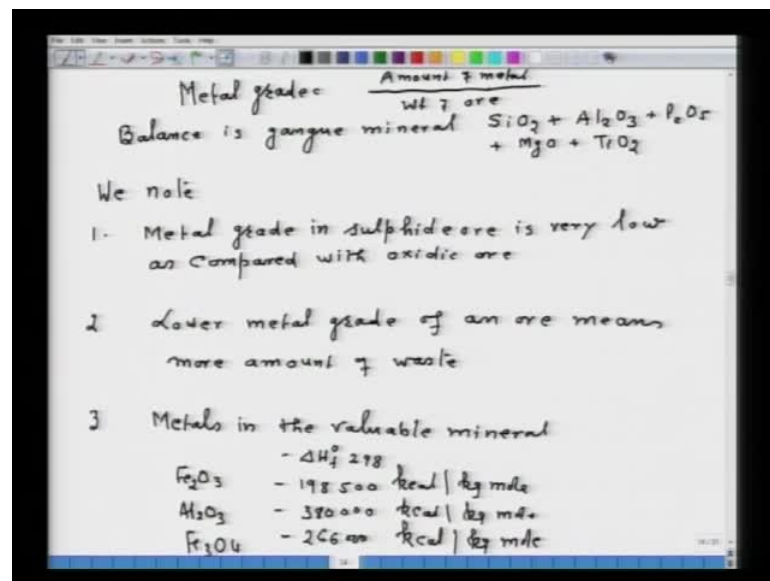 File Edit View Insert Actions Tools Help
Metal grade = Amount of metal
Wt of ore
Balance is gangue mineral SiO2 + Al2O3 + P2O5
+ MgO + TiO2
We note
1. Metal grade in sulphide ore is very low
as compared with oxidic ore
2 Lower metal grade of an ore means
more amount of waste
3 Metals in the valuable mineral
- ΔH°f 298
Fe2O3 - 198500 kcal | kg mole
Al2O3 - 380000 kcal | kg mole
Fe3O4 - 266000 kcal | kg mole